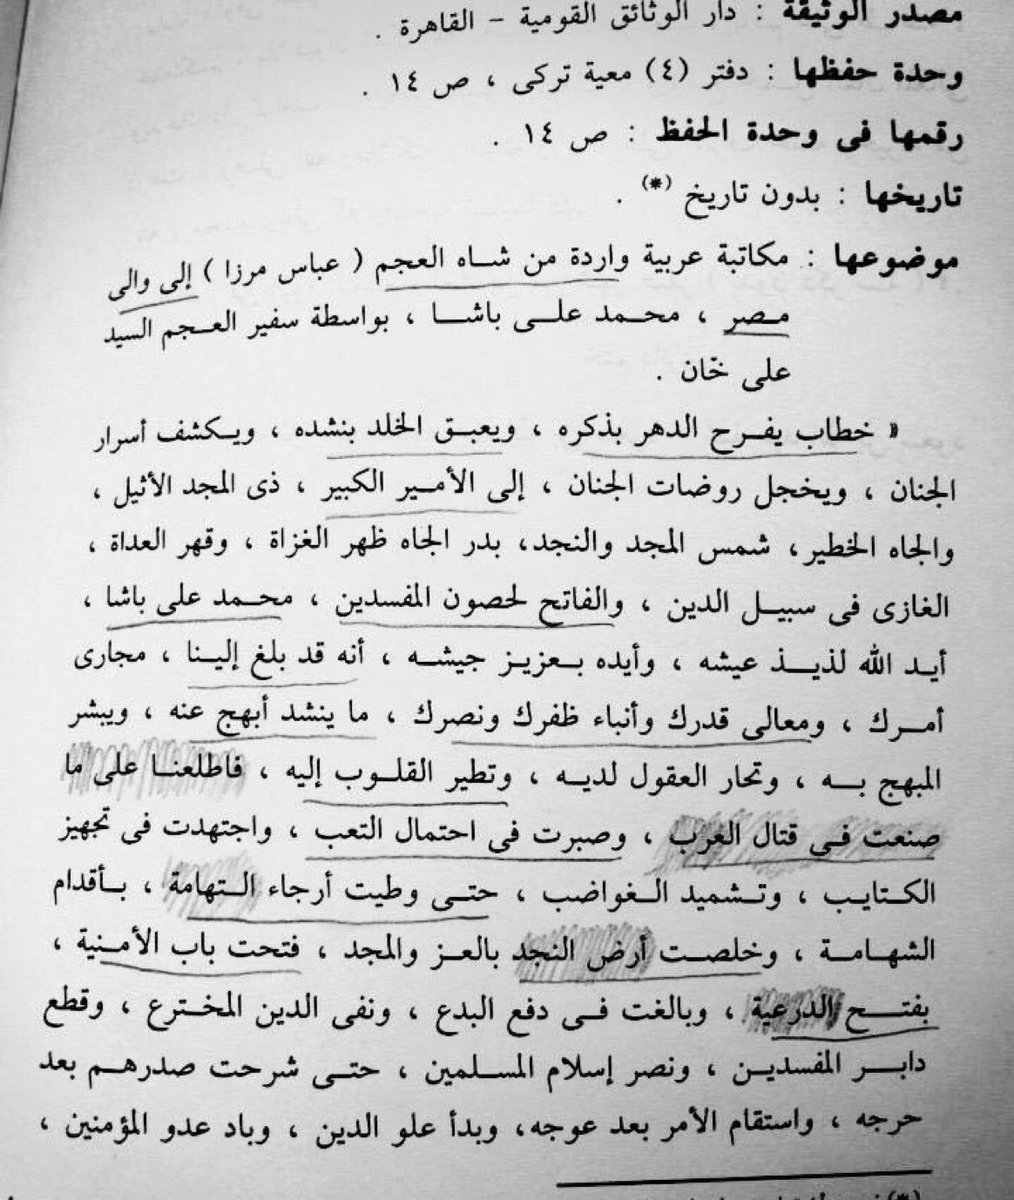 مصدر الوثيقة : دار الوثائق القومية - القاهرة .
وحدة حفظها : دفتر (٤) معية تركى ، ص ١٤ .
رقمها فى وحدة الحفظ : ص ١٤ .
تاريخها : بدون تاريخ (*) .
موضوعها : مكاتبة عربية واردة من شاه العجم ( عباس مرزا ) إلى والى
مصر ، محمد على باشا ، بواسطة سفير العجم السيد
على خان .
« خطاب يفرح الدهر بذكره ، ويعبق الخلد بنشده ، ويكشف أسرار
الجنان ، ويخجل روضات الجنان ، إلى الأمير الكبير ، ذى المجد الأثيل ،
والجاه الخطير، شمس المجد والنجد، بدر الجاه ظهر الغزاة ، وقهر العداة ،
الغازى فى سبيل الدين ، والفاتح لحصون المفسدين ، محمد على باشا ،
أيد الله لذيذ عيشه ، وأيده بعزيز جيشه ، أنه قد بلغ إلينا ، مجارى
أمرك ، ومعالى قدرك وأنباء ظفرك ونصرك ، ما ينشد أبهج عنه ، ويبشر
المبهج به ، وتحار العقول لديه ، وتطير القلوب إليه ، فاطلعنا على ما
صنعت فى قتال العرب ، وصبرت فى احتمال التعب ، واجتهدت فى تجهيز
الكتايب ، وتشميد الغواضب ، حتى وطيت أرجاء التهامة ، بأقدام
الشهامة ، وخلصت أرض النجد بالعز والمجد ، فتحت باب الأمنية ،
بفتح الدرعية ، وبالغت فى دفع البدع ، ونفى الدين المخترع ، وقطع
دابر المفسدين ، ونصر إسلام المسلمين ، حتى شرحت صدرهم بعد
حرجه ، واستقام الأمر بعد عوجه، وبدأ علو الدين ، وباد عدو المؤمنين ،